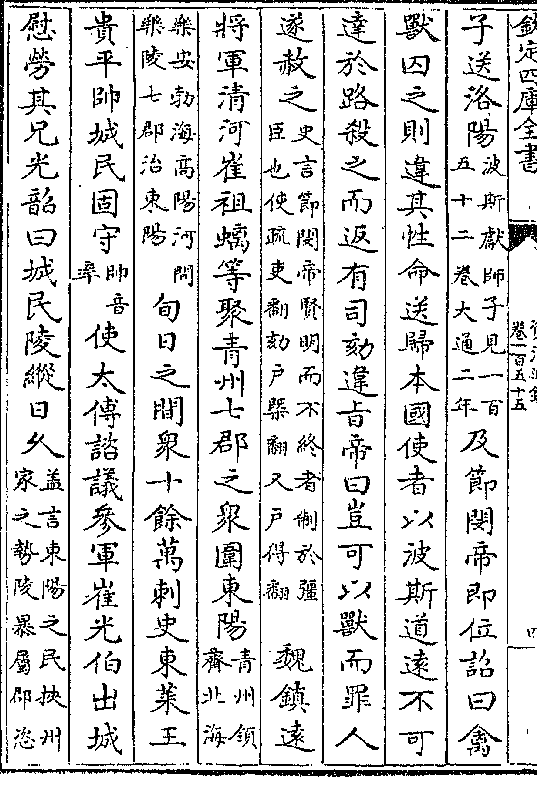 欽定四庫全書
卷一百五十五
四
子送洛陽波斯獻師子見一百五十二卷大通二年及節閔帝即位詔曰禽
獸囚之則違其性命送歸本國使者以波斯道遠不可
達於路殺之而返有司劾違旨帝曰豈可以獸而罪人
遂赦之史言節閔帝賢明而不終者制於彊臣也使疏吏翻劾戶槩翻又戶得翻魏鎮遠
將軍清河崔祖螭等聚青州七郡之衆圍東陽青州領齊北海
樂安勃海高陽河間樂陵七郡治東陽旬日之間衆十餘萬刺史東萊王
貴平帥城民固守帥音率使太傅諮議參軍崔光伯出城
慰勞其兄光韶曰城民陵縱日久蓋言東陽之民挾州家之勢陵暴屬郡恣